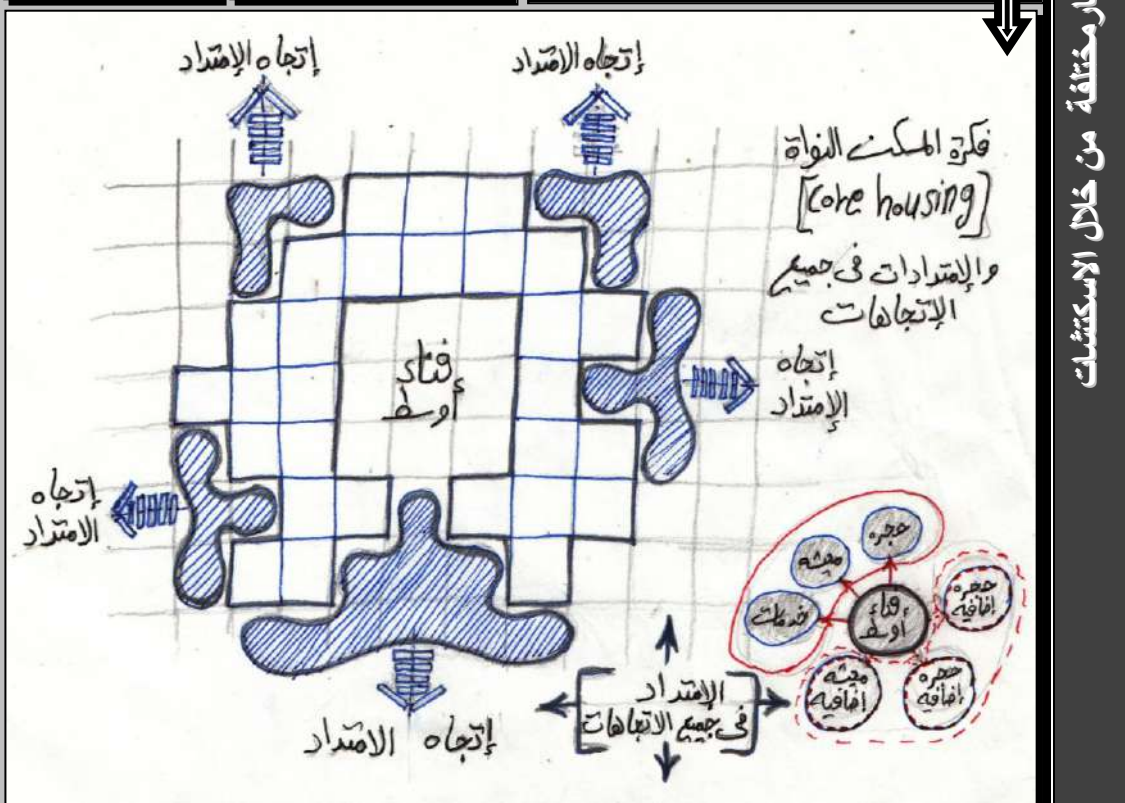 إتجاه الإمتداد
إتجاه الامتداد
فكرة المسكن النواة
[core housing]
والإمتدادات فى جميع
الإتجاهات
إتجاه
الإمتداد
فناء
أوسط
إتجاه
الامتداد
إتجاه الامتداد
الإمتداد
فى جميع الاتجاهات
حجره
معيشه
خدمات
فناء
أوسط
حجره
إضافيه
حجره
إضافيه
معيشه
إضافيه
مختلفة من خلال الاسكتشات